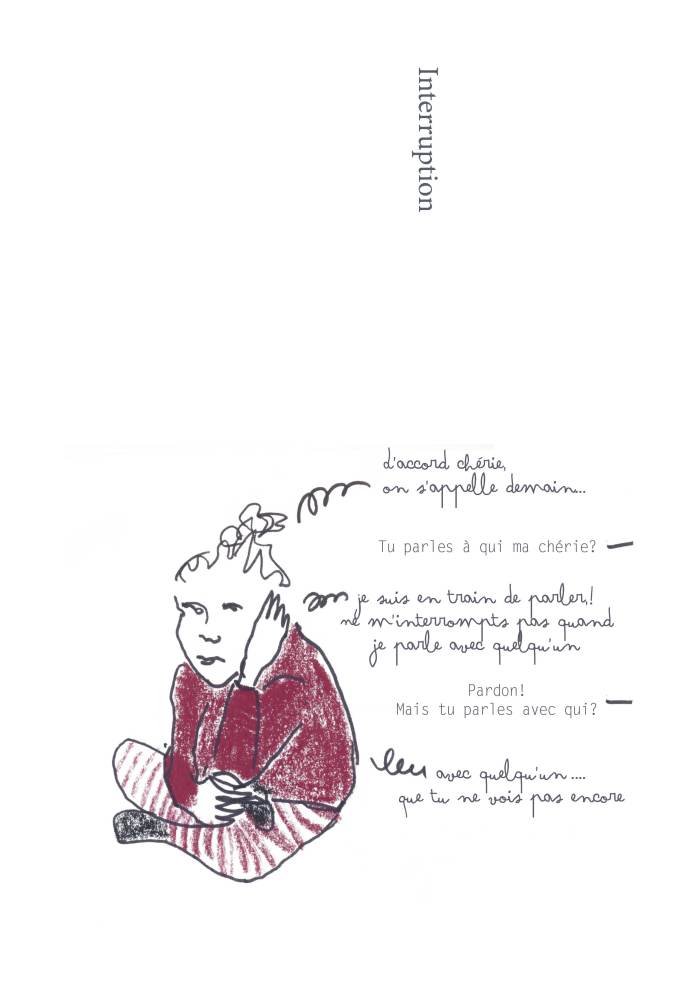 Interruption
d'accord chérie,
on s'appelle demain...
Tu parles à qui ma chérie?
je suis en train de parler,!
ne m'interrompts pas quand
je parle avec quelqu'un
Pardon!
Mais tu parles avec qui?
avec quelqu'un....
que tu ne vois pas encore